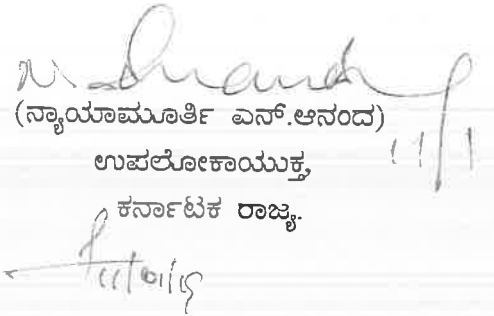 N. Anand
(ನ್ಯಾಯಾಮೂರ್ತಿ ಎನ್.ಆನಂದ)
ಉಪಲೋಕಾಯುಕ್ತ,
ಕರ್ನಾಟಕ ರಾಜ್ಯ.